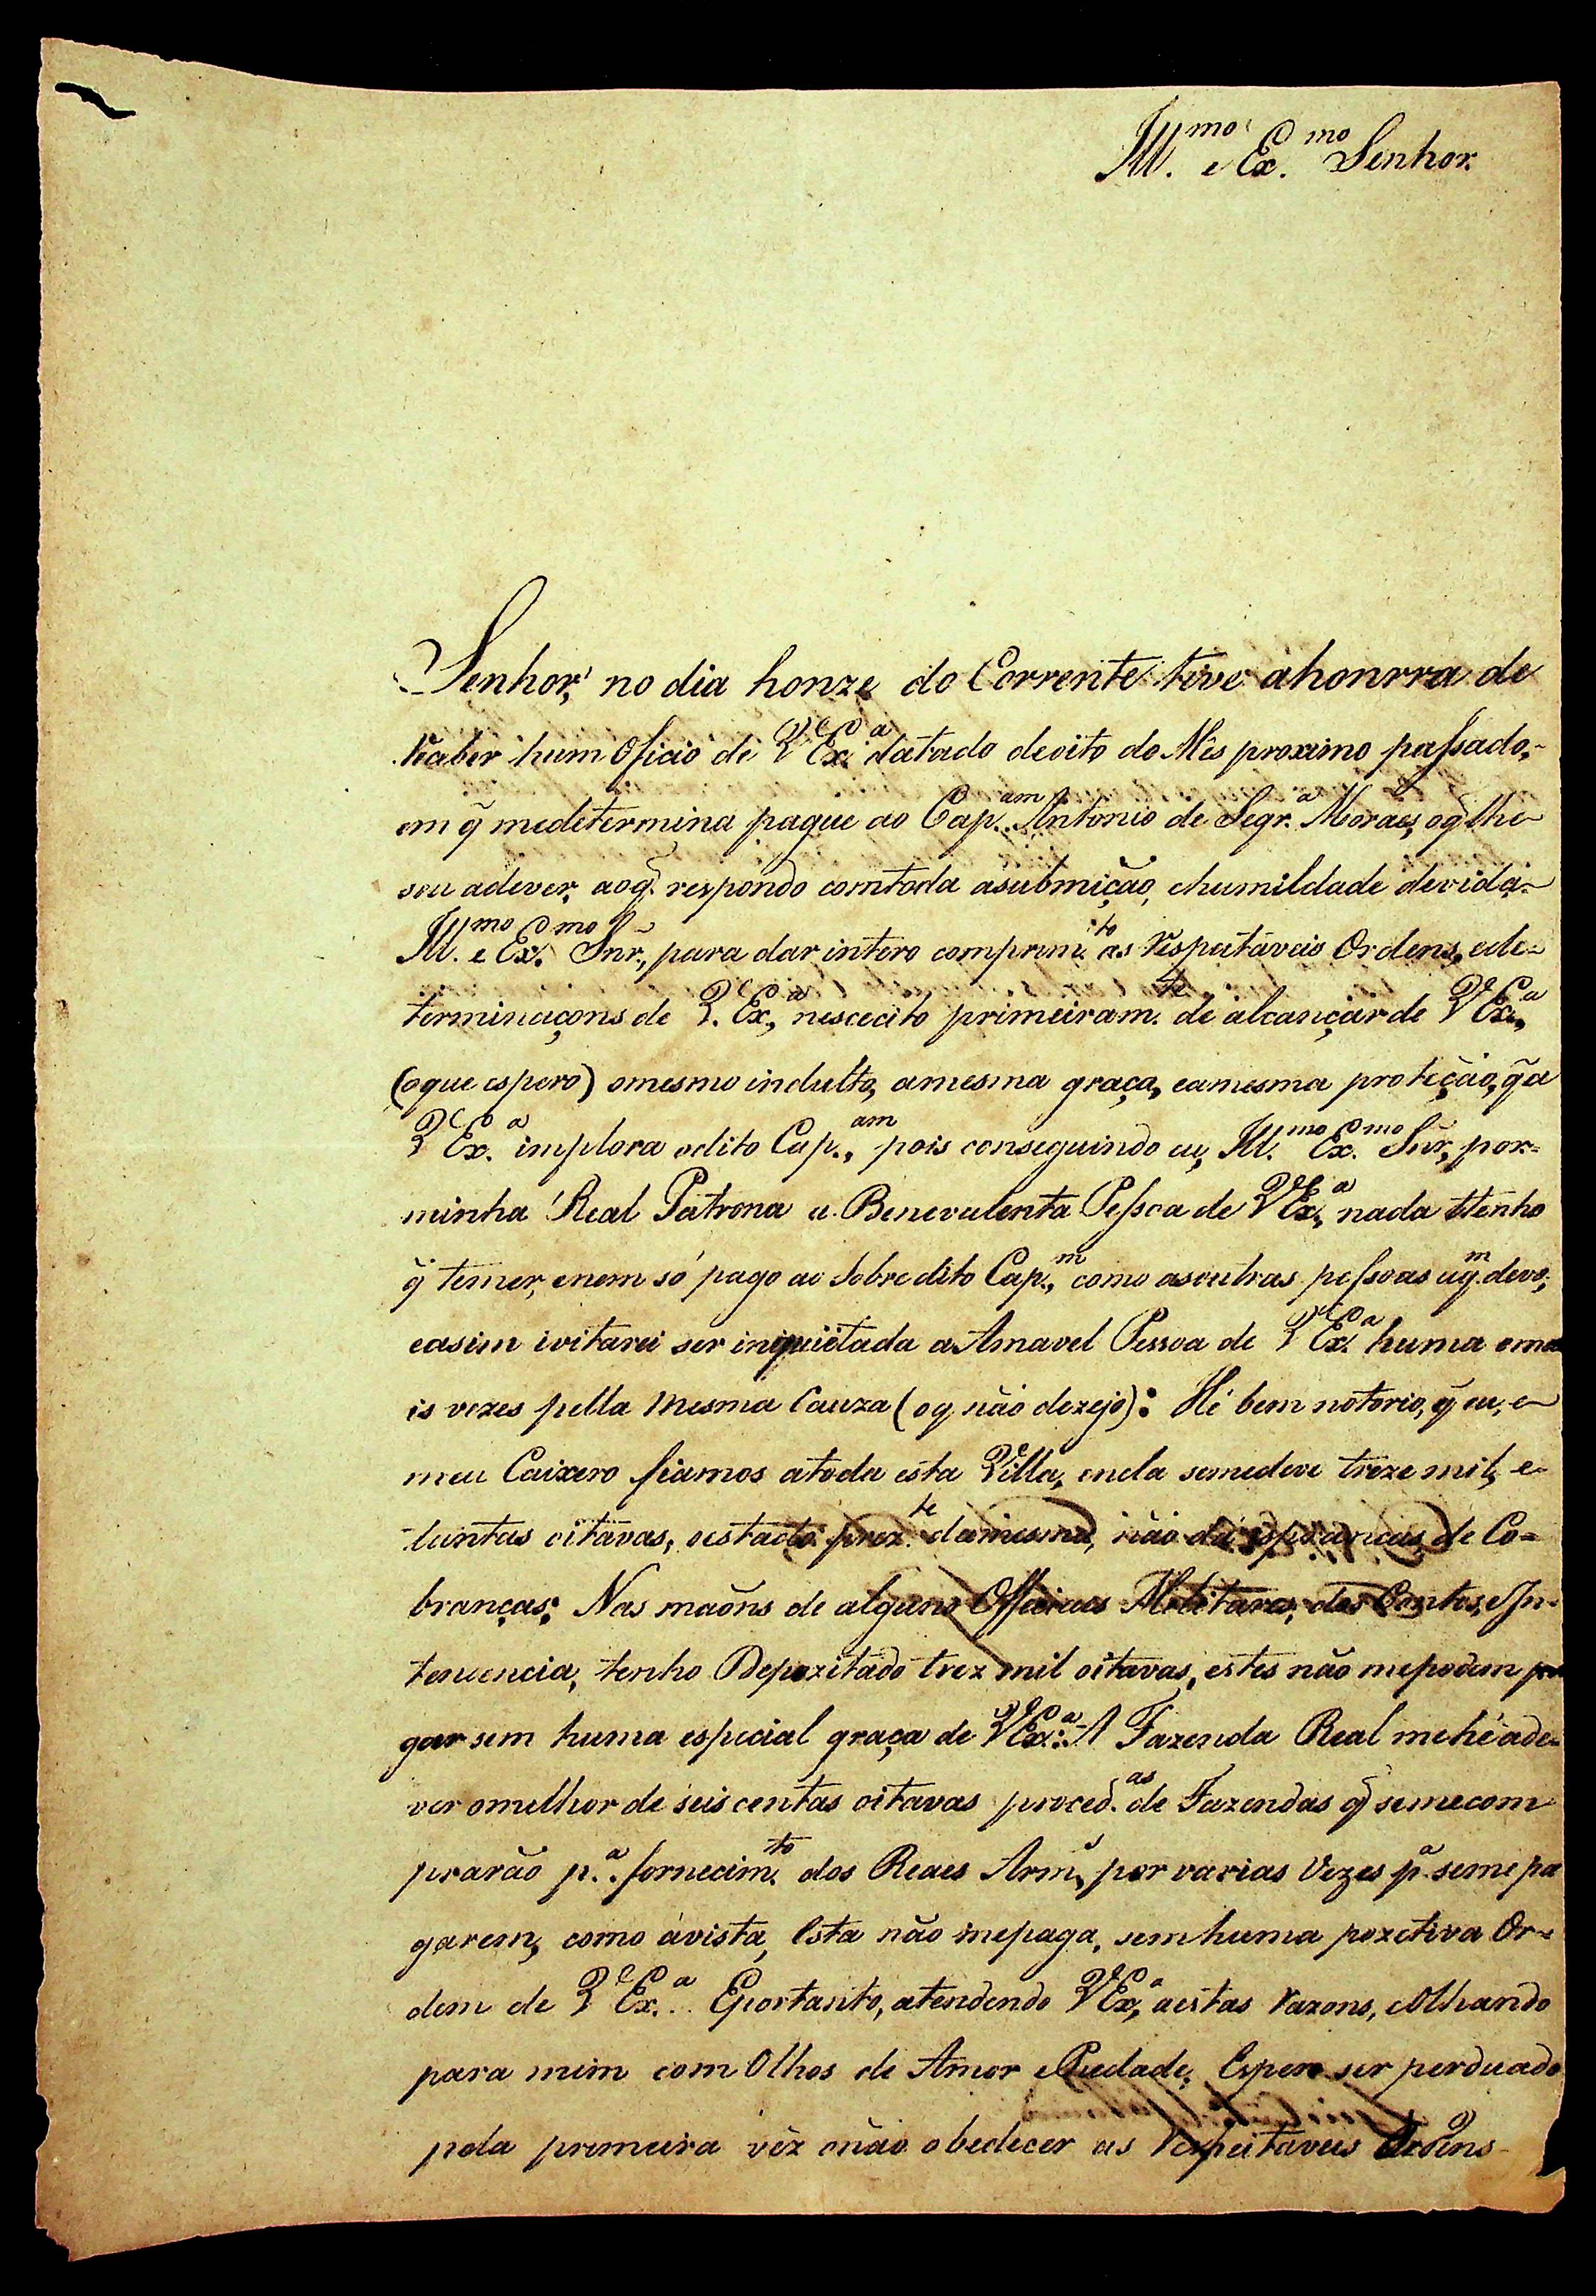 Ill.mo e Ex.mo Senhor.
Senhor, no dia honze do Corrente tive ahonrra de
reaber hum Oficio de V Ex.a datado deoito do Mes proximo passado,
em q̃ medetermina pague ao Cap.am Antonio de Segr.a Moraes, oq̃ lhe
sou adever, aoq̃. respondo comtoda asubmição, ehumildade devida.
Ill.mo e Ex.mo Snr̃., para dar intero comprim.to as respeitáveis Ordens, ede-
terminaçons de V. Ex.a, nescecito primeiram.te de alcançar de V Ex.a,
(oque espero) omesmo indulto, amesma graça, eamesma proteção, q̃ a
V Ex.a implora odito Cap.am, pois conseguindo eu, Ill.mo Ex.mo Snr̃, por-
minha Real Patrona a Benevulenta Pessoa de V Ex.a, nada ttenho
q̃ temer, enem só pago ao Sobredito Cap.m, como asoutras pessoas aq.m devo;
easim ivitarei ser inquiétada a Amavel Pessoa de V Ex.a huma ema
is vezes pella mesma Cauza (oq não dezejo): Hé bem notorio, q̃ eu, e
meu Caixero fiamos atoda esta Villa, enela semedeve treze mil, e
tantas oitavas, oestado prez.te damesma, não dá esperanças de Co-
branças; Nas maõns de alguns Officiaes Militares, dos Contos, eIn-
tencencia, tenho Depozitado trez mil oitavas, estes não mepodem pa
gar sem huma especial graça de V Ex.a: A Fazenda Real mehé ade-
ver omelhor de seis centas oitavas proced.as de Fazendas q̃ semecom
prarão p.a fornecim.to dos Reaes Arm.s, por varias Vezes p.a seme pa
garem, como ávista, Esta não mepaga, sem huma pozetiva Or-
dem de V Ex.a. Eportanto, atendendo V Ex.a, aestas razons, eOlhando
para mim com Olhos de Amor ePiedade, Espero ser perduado
pela premeira vêz onão obedecer as respeitaveis Ordens